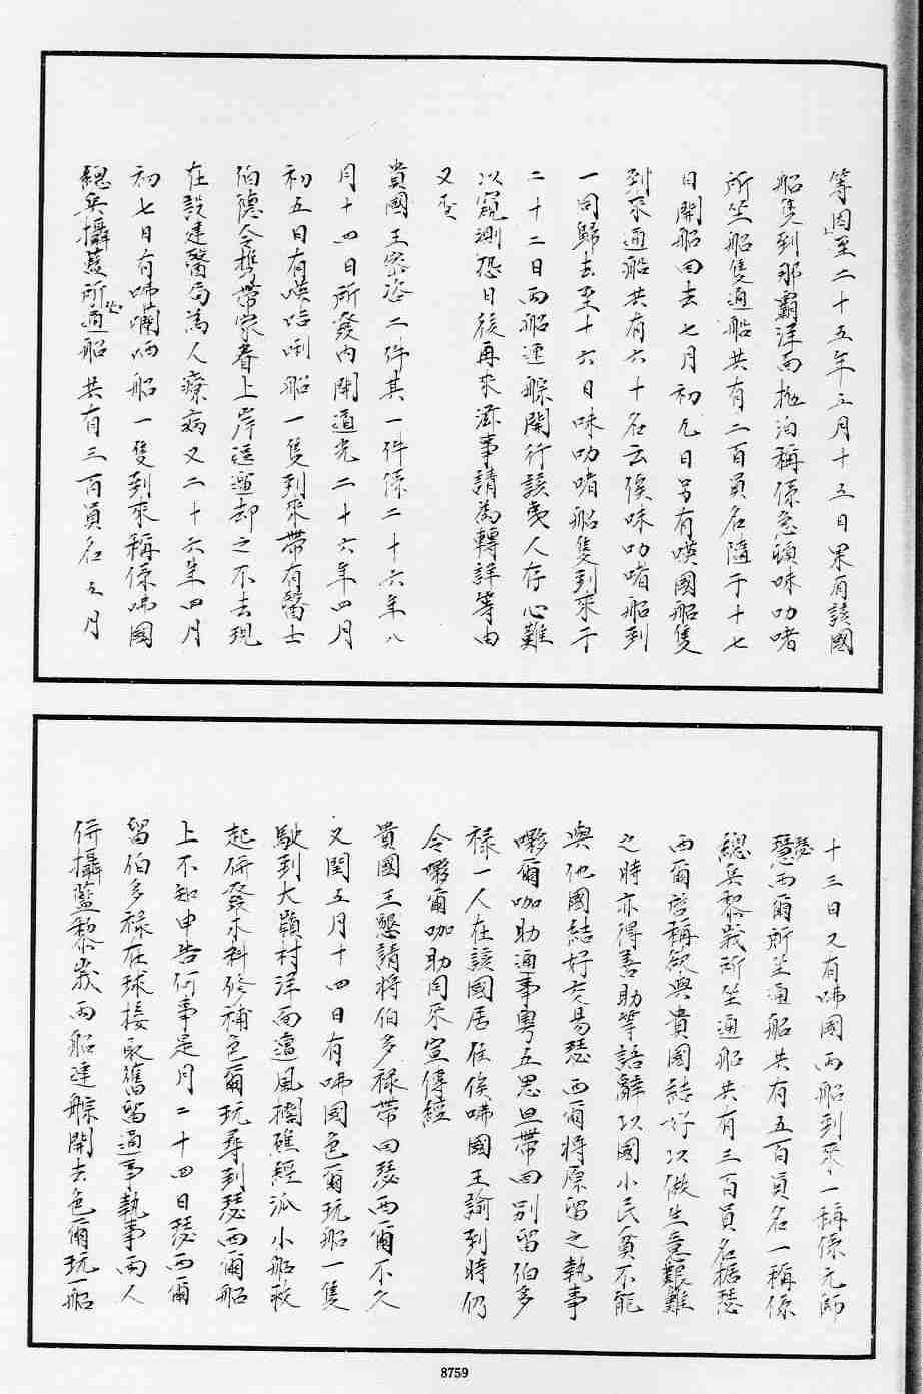 等因至二十五年五月十五日果有該國
船隻到那霸洋面抛泊稱係急頓咪叻啫
所坐船隻通船共有二百員名隨于十七
日開船回去七月初九日另有嘆國船隻
到來通船共有六十名云俟咪叻啫船到
一同歸去至十六日咪叻啫船隻到來于
二十二日兩船連䑸開行該夷人存心難
以窺測恐日後再來滋事請為轉詳等由
又查
貴國王密咨二件其一件係二十六年八
月十四日所發內開道光二十六年四月
初五日有㗸咭唎船一隻到來帶有醫士
伯德令携帶家眷上岸逗遛却之不去現
在設建醫局為人療病又二十六年四月
初七日有咈囒哂船一隻到來稱係咈國
總兵攝藍所坐通船共有三百員名五月
十三日又有咈國兩船到來一稱係元帥
瑟西爾所坐通船共有五百員名一稱係
總兵黎峩所坐通船共有三百員名據瑟
西爾啓稱欲與貴國結好以做生意艱難
之時亦得善助等語辭以國小民貧不能
與他國結好交易瑟西爾將原留之執事
㗲爾咖助通事粤五思旦帶回別留伯多
祿一人在該國居住俟咈國王諭到時仍
令㗲爾咖助同來宣傳經
貴國王懇請將伯多祿帶回瑟西爾不久
又閏五月十四日有咈國色爾玩船一隻
駛到大嶺村洋面遭風擱礁經派小船救
起併發木料修補色爾玩尋到瑟西爾船
上不知申告何事是月二十四日瑟西爾
留伯多祿在球接取舊留通事執事兩人
併攝藍黎峩兩船連䑸開去色爾玩一船
8759